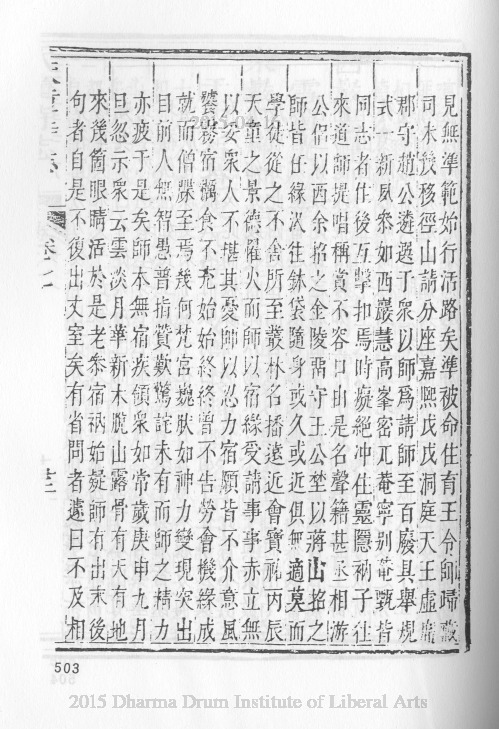 見無準範始行活路矣準被命住育王令師歸藏
司未幾移徑山請分座嘉熙戊戌洞庭天王虛席
郡守趙公遴選于衆以師爲請師至百廢具舉規
式一新風叅如西巖慧高峯密兀菴寧别菴甄皆
同志者住後互擊扣焉時癡絶冲住靈隱衲子往
來道師提唱稱賞不容口由是名聲籍甚丞相游
公侣以西余招之金陵兩守王公埜以蔣山招之
師皆任緣汎往鉢袋隨身或久或近俱無適莫而
學徒從之不舍所至叢林名播遠近會寶祐丙辰
天童之景德罹火而師以宿緣受請事事赤立無
以安衆人不堪其憂師以忍力宿願皆不介意風
饕霧宿糲食不充始始終終曾不告勞會機緣成
就而僧牒至焉幾何梵宮巍狀如神力變現突出
目前人無智愚普指贊歎驚詫未有而師之精力
亦疲于是矣師本無宿疾領衆如常歲庚申九月
旦忽示衆云雲淡月華新木脫山露骨有天有地
來幾箇眼睛活於是老叅宿衲始疑師有出末後
句者自是不復出丈室矣有省問者遽曰不及相
卷七
503
2015 Dharma Drum Institute of Liberal Arts